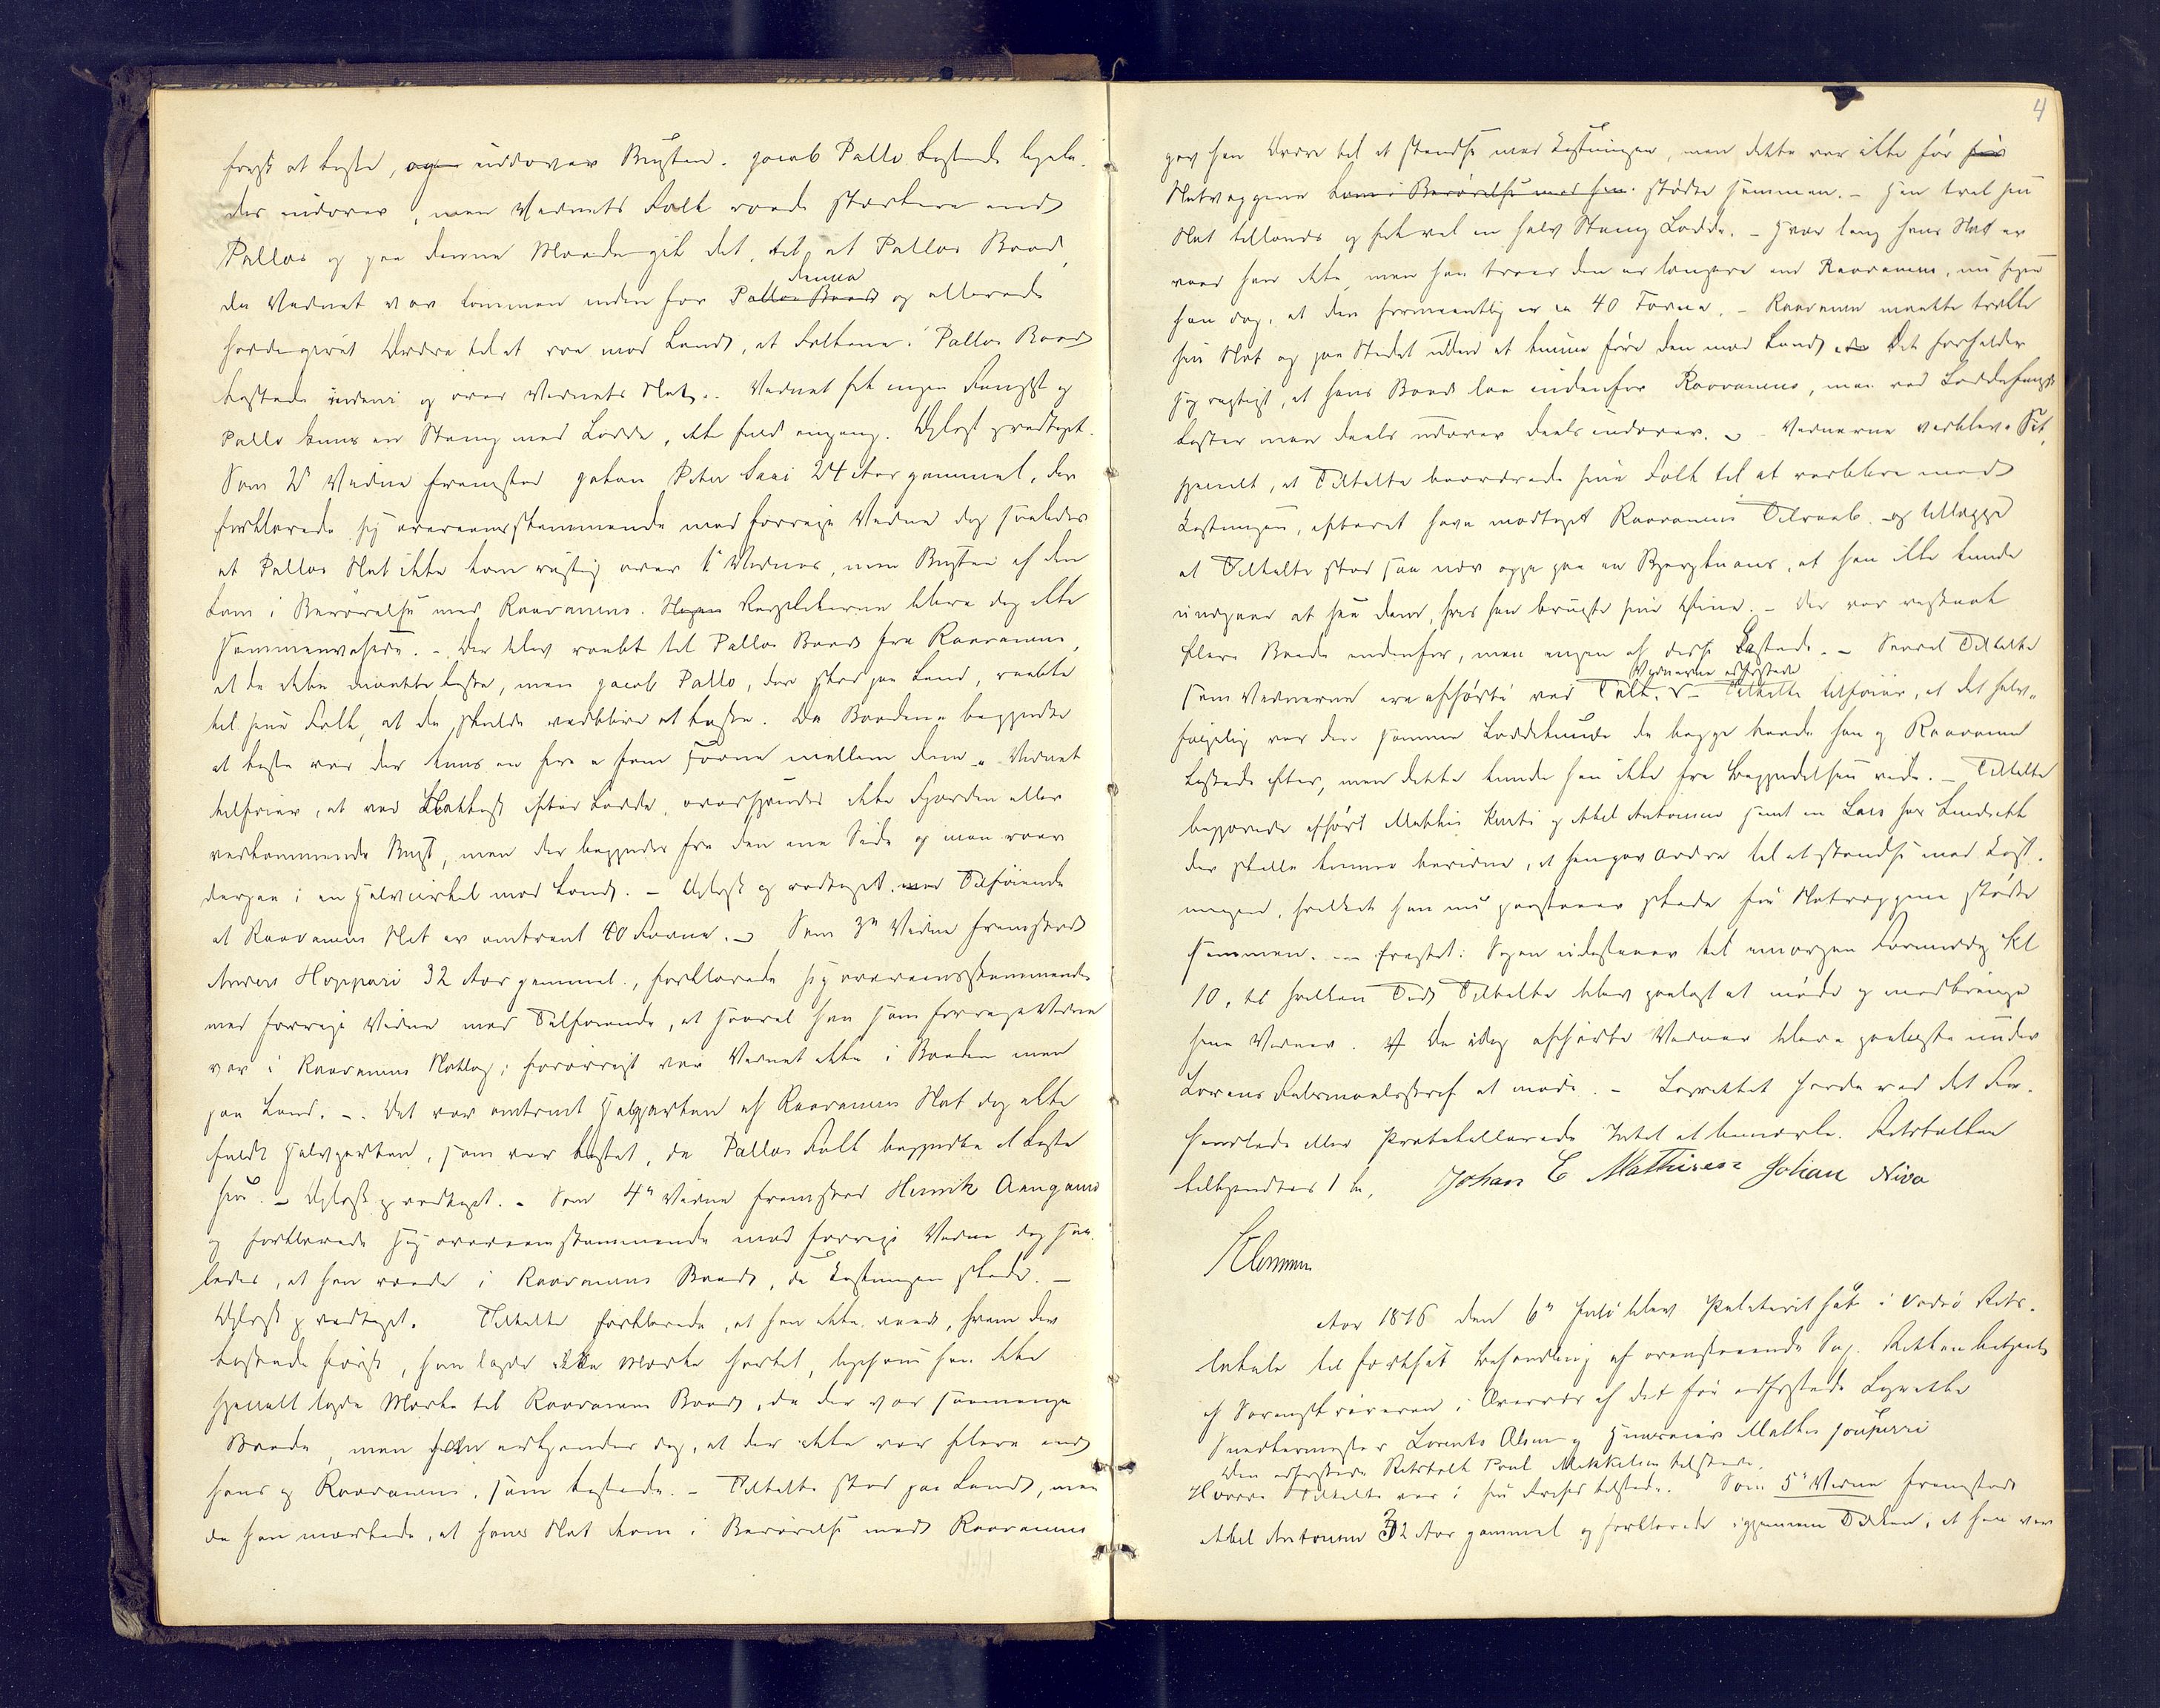 først at kaste, og udover Bugten. Jacob Pallo kastede ligele-
des indover, men Vidnets Folk roede stærkere end
Pallos og paa denne Maade gik det til, at Pallos Baad,
da Vidnet var kommen inden for Pallos Baad denne og allerede
havde givet Ordre til at roe mod Land, at Folkene i Pallos Baad
kastede indeni og over Vidnets Not. Vidnet fik ingen Fangst og
Pallo kuns en Stamp med Lodde, ikke fuld engang. Oplæst vedtaget.
Som 2d Vidne fremstod Johan Peter 24 Aar gammel, der
forklarede sig overeensstemmende med forrige Vidne dog saaledes
at Pallos Not ikke kom rigtig over Vidnes, men Bugten af den
kom i Berørelse med Raavanens. Nogen Korkekerne bleve dog ikke
sammenvasede. - Der blev raabt til Pallos Baad fra Raavanens,
at de ikke maatte kaste, men Jacob Pallo, der stod paa Land, raabte
til sine Folk, at de skulde vedblive at kaste. Da Baadene begyndte
at kaste var der kuns en fire a fem Favne mellem dem. Vidnet
tilføier, at ved Notkast efter Lodde, overspændes ikke Fjorden eller
vedkommende Bugt, men der begyndes fra den ene Side og man roer
derpaa i en Halvcirkel mod Land. - Oplæst og vedtaget med Tilføiende
at Raavanens Not er omtrent 40 Favne. - Som 3de Vidne fremstod
Anders Hoppari 32 Aar gammel, forklarede sig overeensstemmende
med forrige Vidne med Tilføiende, at saavel han som forrige Vidne
var i Raavanens Notlag; forøvrigt var Vidnet ikke i Baaden men
paa Land. - Det var omtrent Halvparten af Raavanens Not dog ikke
fuldt Halvparten, som var kastet, da Pallos Folk begyndte at kaste
sin. - Oplæst & vedtaget. - Som 4de Vidne fremstod Henrik
og forklarede sig overeensstemmende med forrige Vidne dog saa-
ledes, at han roede i Raavanens Baad, da Kastningen skede. -
Oplæst & vedtaget. Tiltalte forklarede, at han ikke veed, hvem der
kastede først, han lagde ikke Mærke hertil, ligesom han ikke
specielt lagde Mærke til Raavanens Baad, da der var saamange
Baade, men han erkjender dog, at der ikke var flere end
hans og Raavanens, som kastede. - Tiltalte stod paa Land, men
da han mærkede, at hans Not kom i Berørelse med Raavanens
4
gav han Ordre til at standse med Kastningen, men dette var ikke før før
Notvæggene kom i Berørelse med hin. stødte sammen. - Han trak sin
Not tillands og fik vel en halv Stamp Lodde. - Hvor lang hans Not er
veed han ikke, men han troer den er længere end Raavanens, nu siger
han dog, at den formeentlig er ca 40 Favne. - Raavanen maatte trække
sin Not op paa Stedet uden at kunne føre den mod Land Det forholder
sig rigtigt, at hans Baad laa indenfor Raavanens, men ved Loddefangst
kaster man deels udover deels indover. - Vidnerne verblev Sit,
specielt, at Tiltalte beordrede sine Folk til at vedblive med
Kastningen, efterat have modtaget Raavanens Tilraab og tillægge
at Tiltalte stod saa nær oppe paa en Bjergknaus, at han ikke kunde
undgaae at see dem, hvis han brugte sine Øine. - Der var vistnok
flere Baade indenfor, men ingen af disse kastede. - Saavel Tiltalte
som Vidnerne ere afhørte ved Tolk. Vidnerne aftraadte Tiltalte tilføier, at det selv-
følgelig var den samme Loddestime de begge baade han og Raavanen
kastede efter, men dette kunde han ikke fra Begyndelsen vide. - Tiltalte
begjærede afhørt Mathis Kurti og Abel Antonsen samt en Lars hos Lendrekk
der skulle kunne bevidne, at han gav Ordre til at standse med Kast-
ningen, hvilket han nu paastaaer skede før Notvæggene stødte
sammen. - Fristet: Sagen udestaaer til imorgen Formiddag Kl
10, til hvilken Tid Tiltalte blev paalagt at møde og medbringe
sine Vidner. De idag afhørte Vidner bleve paalagte under
Lovens Faldsmaalsstraf at møde. - Lagrettet havde ved det For-
handlede eller Protokollerede Intet at bemærke. Retstolken
tilkjendtes 1 Kr. Johan E Mathiesen Johan Niva
Klemmen
Aar 1876 den 6te Juli blev Politirit sat i Vadsø Rets-
lokale til fortsat Behandling af ovenstaaende Sag. Retten betjent
af Sorenskriveren i Overvær af det før edfæstede Lagrette
Snedkermester Lorents Olsen og Huuseier Mathis
Den edfæstede Retstolk Paul Mikkelsen tilstede.
Tiltalte var i sin Frihed tilstede. Som 5te Vidne fremstod
Abel Antonsen 32 Aar gammel og forklarede igjennem Tolken, at han var